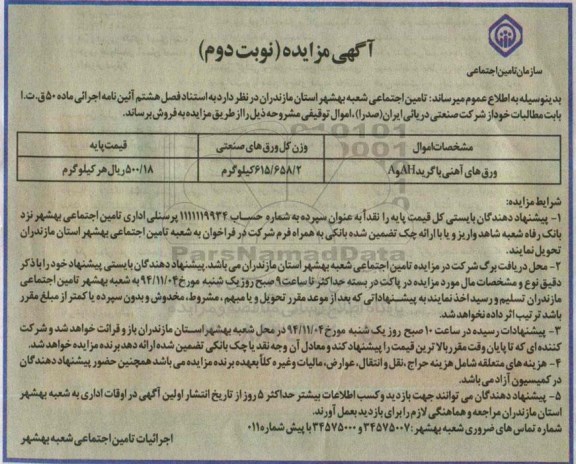 آگهی مزایده (نوبت دوم)
سازمان تامین اجتماعی
بدینوسیله به اطلاع عموم میرساند: تامین اجتماعی شعبه بهشهر استان مازندران در نظر دارد به استناد فصل هشتم آئین نامه اجرائی ماده ۵۰ ق.ت.ا
بابت مطالبات خود از شرکت صنعتی دریائی ایران (صدرا)، اموال توقیفی مشروحه ذیل را از طریق مزایده به فروش برساند.
مشخصات اموال وزن کل ورق های صنعتی قیمت پایه
ورق های آهنی با گرید AH و A ۶۱۵/۶۵۸/۲ کیلوگرم ۵۰۰/۱۸ ریال هر کیلوگرم
شرایط مزایده:
۱- پیشنهاد دهندگان بایستی کل قیمت پایه را نقداً به عنوان سپرده به شماره حساب ۱۱۱۱۱۱۹۹۳۴ پرسنلی اداری تامین اجتماعی بهشهر نزد
بانک رفاه شعبه شاهد واریز و یا با ارائه چک تضمین شده بانکی به همراه فرم شرکت در فراخوان به شعبه تامین اجتماعی بهشهر استان مازندران
تحویل نمایند.
۲- محل دریافت برگ شرکت در مزایده تامین اجتماعی شعبه بهشهر استان مازندران می باشد. پیشنهاد دهندگان بایستی پیشنهاد خود را با ذکر
دقیق نوع و مشخصات مال مورد مزایده در پاکت در بسته حداکثر تا ساعت ۹ صبح روز یک شنبه مورخ ۹۴/۱۱/۰۴ به شعبه بهشهر تامین اجتماعی
مازندران تسلیم و رسید اخذ نمایند به پیشنهاداتی که بعد از موعد مقرر تحویل و یا مبهم، مشروط، مخدوش و بدون سپرده یا کمتر از مبلغ مقرر
باشد ترتیب اثر داده نخواهد شد.
۳- پیشنهادات رسیده در ساعت ۱۰ صبح روز یک شنبه مورخ ۹۴/۱۱/۰۴ در محل شعبه بهشهر استان مازندران باز و قرائت خواهد شد و شرکت
کننده ای که تا پایان وقت مقرر بالاترین قیمت را پیشنهاد کند و معادل آن وجه نقد یا چک بانکی تضمین شده ارائه دهد برنده مزایده خواهد شد.
۴- هزینه های متعلقه شامل هزینه حراج، نقل و انتقال، عوارض، مالیات و غیره کلاً بعهده برنده مزایده می باشد همچنین حضور پیشنهاد دهندگان
در کمیسیون آزاد می باشد.
۵- پیشنهاد دهندگان می توانند جهت بازدید و کسب اطلاعات بیشتر حداکثر ۵ روز از تاریخ انتشار اولین آگهی در اوقات اداری به شعبه بهشهر
استان مازندران مراجعه و هماهنگی لازم را برای بازدید بعمل آورند.
شماره تماس های ضروری شعبه بهشهر: ۳۴۵۷۵۰۰۷ و ۳۴۵۷۵۰۰۰ با پیش شماره ۰۱۱
اجرائیات تامین اجتماعی شعبه بهشهر
ParsNamadData